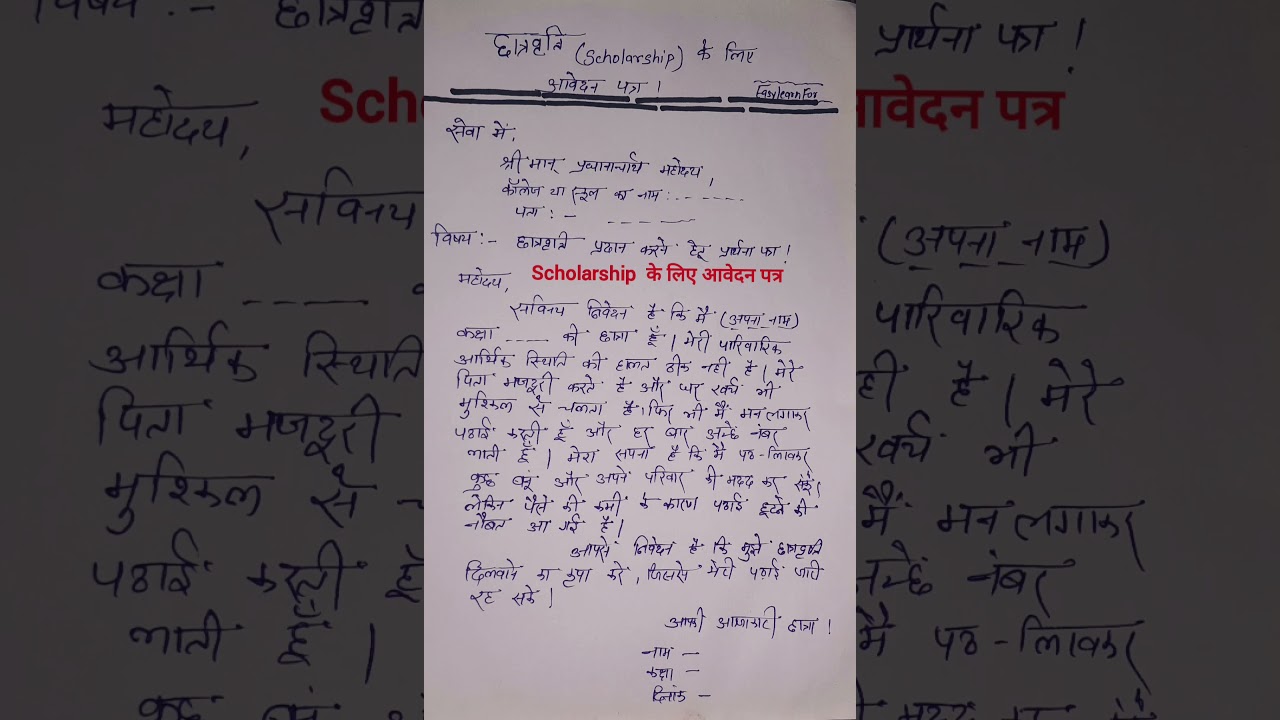 छात्रवृत्ति (Scholarship) के लिए
आवेदन पत्र।
Easy learn For
सेवा में,
श्री मान् प्रधानाचार्य महोदय,
कॉलेज या स्कूल का नाम:- - - - - -
पता :- - - - - - -
विषय:- छात्रवृत्ति प्रदान करने हेतु प्रार्थना पत्र!
Scholarship के लिए आवेदन पत्र
महोदय,
सविनय निवेदन है कि मैं (अपना नाम)
कक्षा ---- की छात्रा हूँ। मेरी पारिवारिक
आर्थिक स्थिति की हालत ठीक नहीं है। मेरे
पिता मजदूरी करते है और घर खर्च भी
मुश्किल से चलता है। फिर भी मैं मन लगाकर
पढाई करती हूँ और हर बार अच्छे नंबर
लाती हूँ। मेरा सपना है कि मैं पढ-लिखकर
कुछ बनूं और अपने परिवार की मदद कर सकूँ।
लेकिन पैसे की कमी के कारण पढाई छूटने की
नौबत आ गई है।
आपसे निवेदन है कि मुझे छात्रवृत्ति
दिलवाने का कृपा करें, जिससे मेरी पढाई जारी
रह सके।
आपकी आज्ञाकारी छात्रा।
नाम -
कक्षा -
दिनांक -